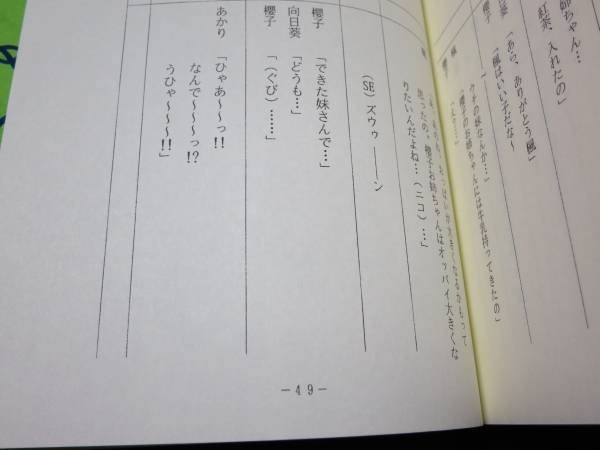 姉ちゃん…
紅茶、入れたの」
「あら、ありがとう楓」
櫻子
「楓はいい子だな～
ウチの妹なんか…」
楓
「櫻子のお姉ちゃんには牛乳持ってきたの」
櫻子
思ったの。櫻子お姉ちゃんはオッパイ大きくな
りたいんだよね…（ニコ）…」
（SE）ズウゥ ――ン
櫻子
「できた妹さんで…」
向日葵
「どうも…」
櫻子
「（ぐび）……」
あかり
「ひゃあ～～っ!!
なんで～～～っ!?
うひゃ～～～!!」
－49－